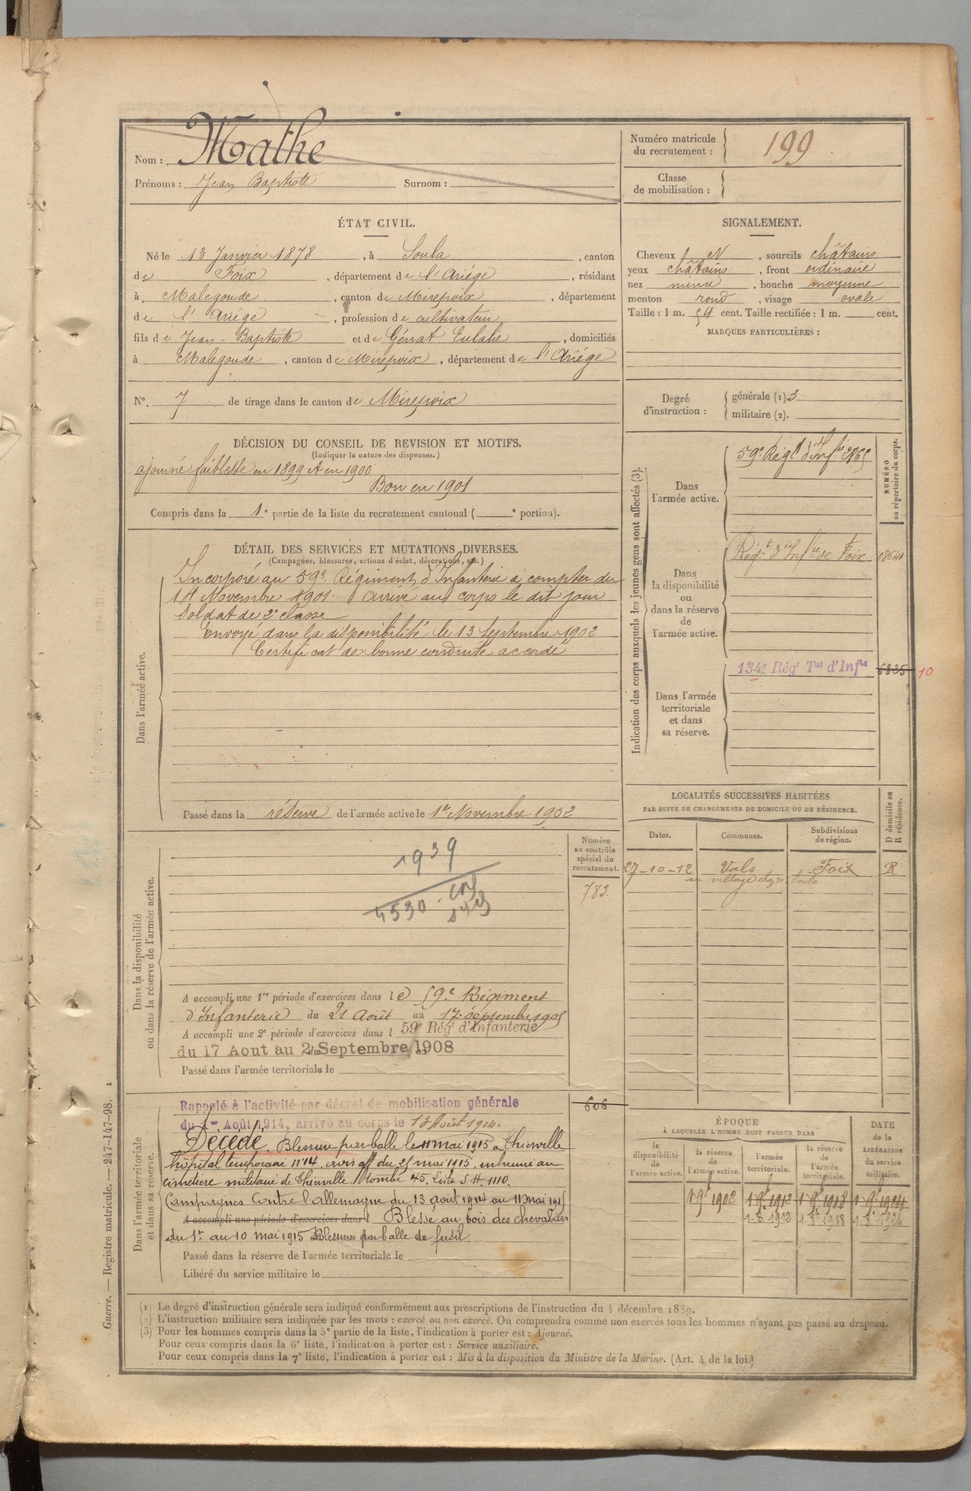 Nom : Mathe
Prénoms : Jean Baptiste Surnom :
Numéro matricule du recrutement : 199
Classe de mobilisation :
ÉTAT CIVIL.
Né le 13 Janvier 1878, à Soula, canton
de Foix, département de l'Ariége, résidant
à Malegoude, canton de Mirepoix, département
de l'Ariége, profession de cultivateur
fils de Jean-Baptiste et de Génat Eulalie, domiciliés
à Malegoude, canton de Mirepoix, département de l'Ariége
N°. 7 de tirage dans le canton de Mirepoix
SIGNALEMENT.
Cheveux N, sourcils châtains
yeux châtains, front ordinaire
nez mince, bouche moyenne
menton rond, visage ovale
Taille : 1 m. 54 cent. Taille rectifiée : 1 m. cent.
MARQUES PARTICULIÈRES :
Degré d'instruction : générale (1) 3
militaire (2).
DÉCISION DU CONSEIL DE REVISION ET MOTIFS.
(Indiquer la nature des dispenses.)
ajourné faiblesse en 1899 et en 1900
Bon en 1901
Compris dans la 1e partie de la liste du recrutement cantonal ( e portion).
DÉTAIL DES SERVICES ET MUTATIONS DIVERSES.
(Campagnes, blessures, actions d'éclat, décorations, etc.)
Dans l'armée active.
Incorporé au 59e Régiment d'Infanterie à compter du
14 Novembre 1901 arrivé au corps le dit jour
Soldat de 2e classe
Envoyé dans la disponibilité le 13 Septembre 1902
Certificat de bonne conduite accordé
Passé dans la réserve de l'armée active le 1er Novembre 1902
Indication des corps auxquels les jeunes gens sont affectés (3).
NUMÉRO au répertoire du corps.
Dans l'armée active.
59e Régt d'Infie
Dans la disponibilité ou dans la réserve de l'armée active.
Régt d'Infie de Foix
Dans l'armée territoriale et dans sa réserve.
134e Régt Tal d'Infie 6835 10
LOCALITÉS SUCCESSIVES HABITÉES
PAR SUITE DE CHANGEMENTS DE DOMICILE OU DE RÉSIDENCE.
Dates. Communes. Subdivisions de région. D domicile ou R résidence.
27-10-12 Vals Foix R
au village
Dans la disponibilité ou dans la réserve de l'armée active.
Numéro au contrôle spécial du recrutement.
783
1939
4530
A accompli une 1re période d'exercices dans le 59e Régiment
d'Infanterie du 21 Août au 17 septembre 1905
A accompli une 2e période d'exercices dans l 59e Rég d'Infanterie
du 17 Aout au 2 Septembre 1908
Passé dans l'armée territoriale le
Dans l'armée territoriale et dans sa réserve.
606
Rappelé à l'activité par décret de mobilisation générale
du 1er Août 1914, arrivé au corps le 13 Août 1914.
Décédé. Blessure par balle le 11 mai 1915 à Thierville
hôpital temporaire n° 14, avis off du 25 mai 1915, inhumé au
cimetière militaire de Thierville tombe 45. Liste S H. 1110.
Campagnes Contre l'Allemagne du 13 août 1914 au 11 mai 1915
A accompli une période d'exercices dans l Blessé au bois des chevaliers
du 1er au 10 mai 1915 Blessure par balle de fusil.
Passé dans la réserve de l'armée territoriale le
Libéré du service militaire le
ÉPOQUE
À LAQUELLE L'HOMME DOIT PASSER DANS
la disponibilité de l'armée active. la réserve de l'armée active. l'armée territoriale. la réserve de l'armée territoriale. DATE de la LIBÉRATION du service militaire.
1 9bre 1902 1 9bre 1912 1 9bre 1918 1 9bre 1924
(1) Le degré d'instruction générale sera indiqué conformément aux prescriptions de l'instruction du 4 décembre 1889.
(2) L'instruction militaire sera indiquée par les mots : exercé ou non exercé. On comprendra comme non exercés tous les hommes n'ayant pas passé au drapeau.
(3) Pour les hommes compris dans la 5e partie de la liste, l'indication à porter est : Ajourné.
Pour ceux compris dans la 6e liste, l'indication à porter est : Service auxiliaire.
Pour ceux compris dans la 7e liste, l'indication à porter est : Mis à la disposition du Ministre de la Marine. (Art. 4 de la loi.)
Guerre. — Registre matricule. — 247-147-98. 1